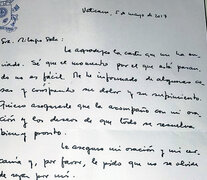 Vaticano, 5 de mayo de 2017
Sra. Milagro Sala:
Le agradezco la carta que me ha en-
viado. Sé que el momento por el que está pasan-
do no es fácil. Me he informado de algunas co-
sas y comprendo su dolor y su sufrimiento.
Quiero asegurarle que la acompaño con mi ora-
ción y los deseos de que todo se resuelva
bien y pronto.
Le aseguro mi oración y mi cer-
canía y, por favor, le pido que no se olvide
de rezar por mí.